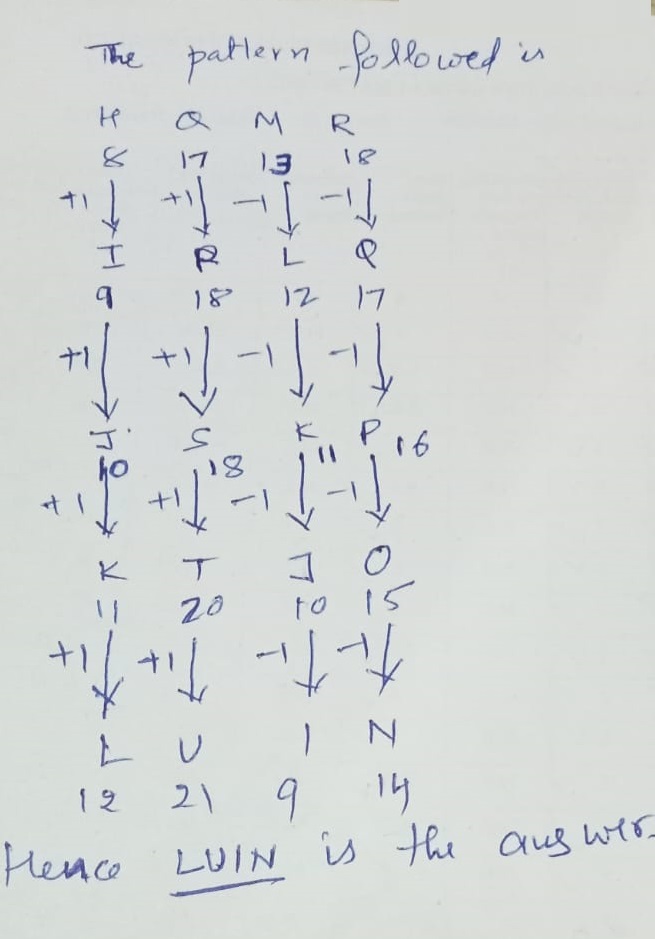 The pattern followed is
H Q M R
8 17 13 18
+1 +1 -1 -1
I R L Q
9 18 12 17
+1 +1 -1 -1
J S K P
10 18 11 16
+1 +1 -1 -1
K T J O
11 20 10 15
+1 +1 -1 -1
L U I N
12 21 9 14
Hence LUIN is the answer.